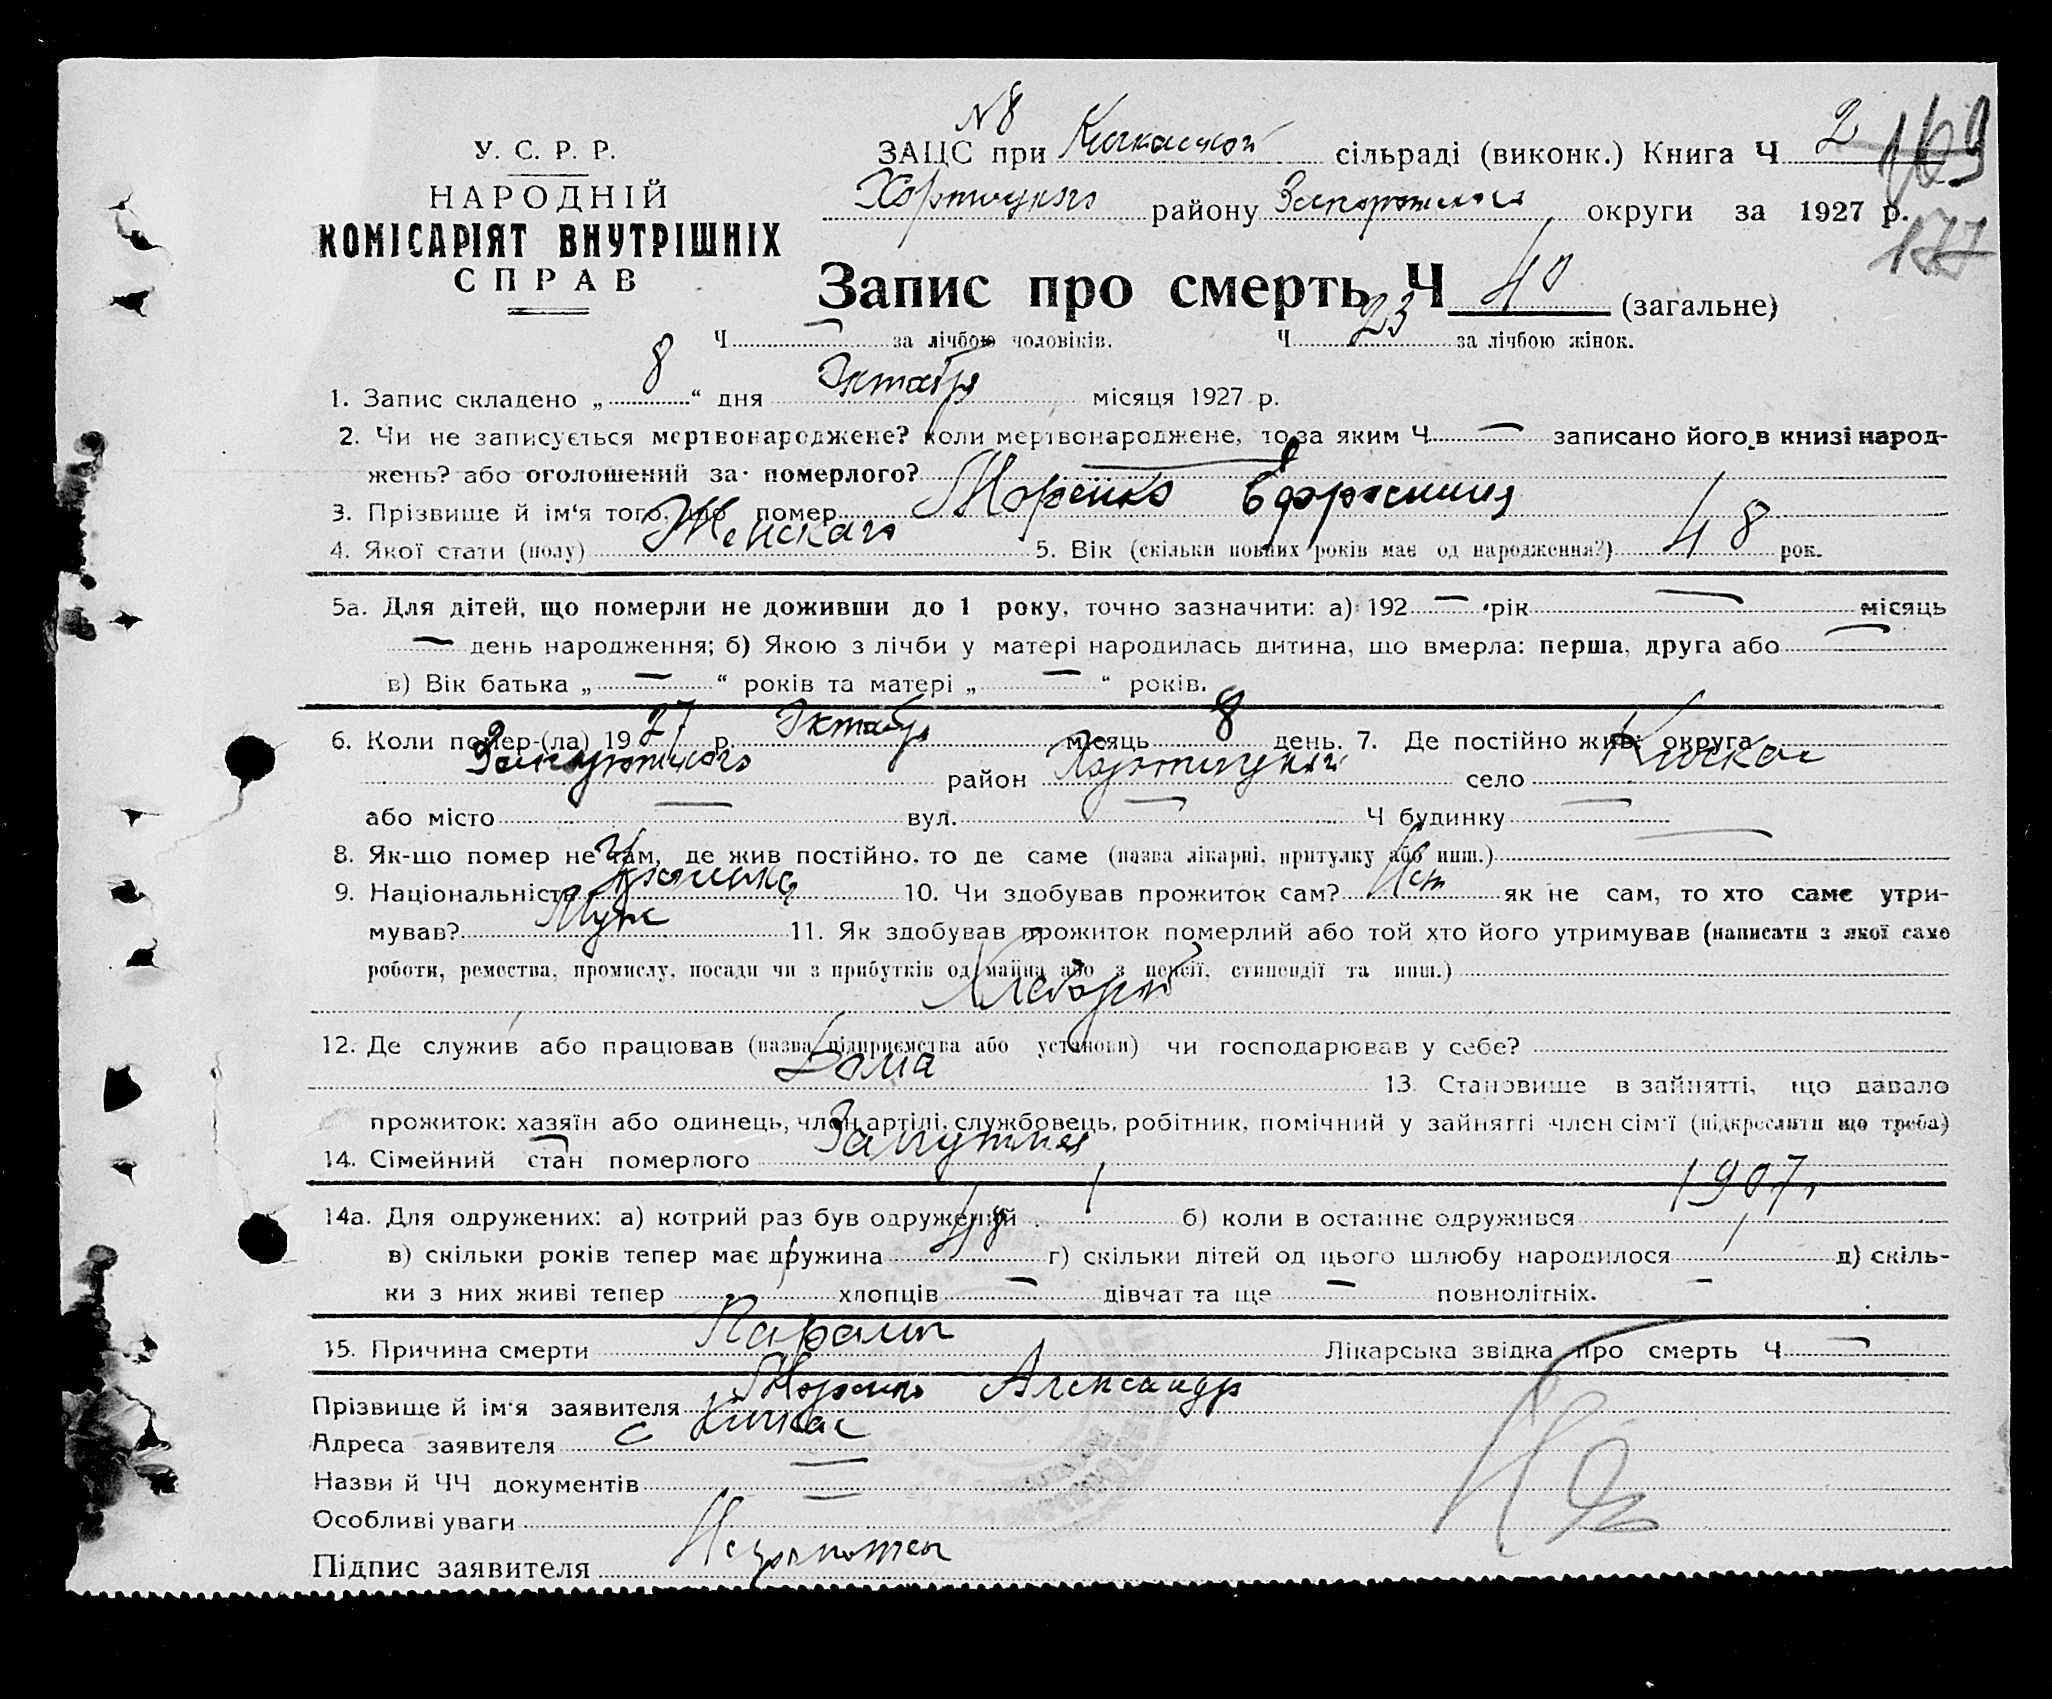 № 8
У. С. Р. Р.
НАРОДНІЙ
КОМІСАРІЯТ ВНУТРІШНІХ
СПРАВ
ЗАЦС при Кичкаской сільраді (виконк.) Книга Ч 2 163
Хортицкого району Запорожского округи за 1927 р.
177
Запис про смерть Ч 40 (загальне)
Ч — за лічбою чоловіків. Ч 23 за лічбою жінок.
1. Запис складено „ 8 “ дня Октября місяця 1927 р.
2. Чи не записується мертвонароджене? коли мертвонароджене, то за яким Ч — записано його в книзі народ-
жень? або оголошений за померлого? —
3. Прізвище й ім‘я того, що помер Ефросиния
4. Якої стати (полу) Женскаго 5. Вік (скільки повних років має од народження?) 48 рок.
5а. Для дітей, що померли не доживши до 1 року, точно зазначити: а) 192 — рік — місяць
— день народження; б) Якою з лічби у матері народилась дитина, що вмерла: перша, друга або —
в) Вік батька „ — “ років та матері „ — “ років.
6. Коли помер-(ла) 1927 р. Октября місяць 8 день. 7. Де постійно жив: округа
Запорожского район Хортицкий село Кичкас
або місто — вул. — Ч будинку —
8. Як-що помер не там, де жив постійно, то де саме (назва лікарні, притулку або инш.) —
9. Національність 10. Чи здобував прожиток сам? Нет як не сам, то хто саме утри-
мував? Муж 11. Як здобував прожиток померлий або той хто його утримував (написати з якої саме
роботи, ремества, промислу, посади чи з прибутків од майна або з пенсії, стипендії та инш.)
Хлебороб
12. Де служив або працював (назва підприємства або установи) чи господарював у себе?
Дома 13. Становище в зайнятті, що давало
прожиток: хазяїн або одинець, член артілі, службовець, робітник, помічний у зайнятті член сім‘ї (підкреслити що треба)
14. Сімейний стан померлого Замужняя
14а. Для одружених: а) котрий раз був одружений 1 б) коли в останнє одружився 1907 г.
в) скільки років тепер має дружина 48 г) скільки дітей од цього шлюбу народилося д) скіль-
ки з них живі тепер хлопців — дівчат та ще — повнолітніх. —
15. Причина смерти Лікарська звідка про смерть Ч —
Прізвище й ім‘я заявителя Александр
Адреса заявителя с Кичкас
Назви й ЧЧ документів —
Особливі уваги —
Підпис заявителя